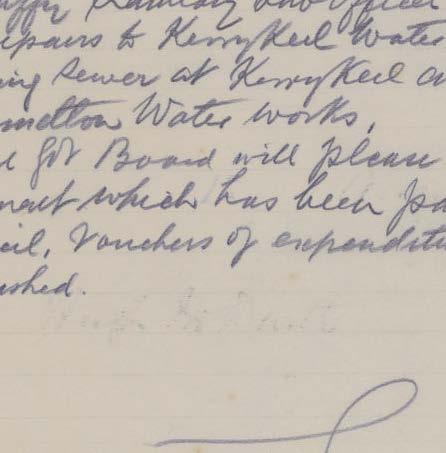 Sanitary Sub Officer
epairs to Kerrykeel Water
ing Sewer at Kerrykeel a
melton Water works,
l Govt Board will please
mount which has been pa
cil, Vouchers of expenditu
ished.